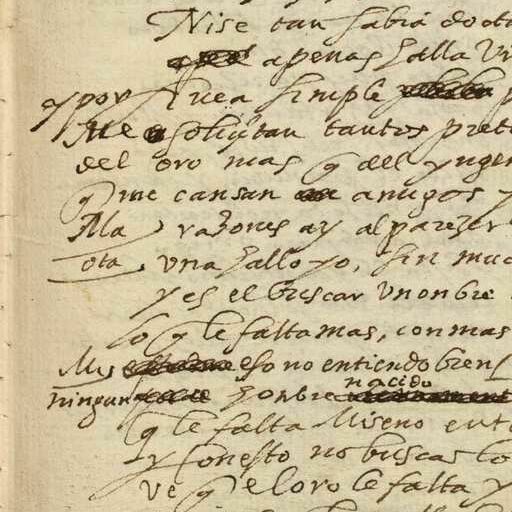 Nise tan sabia docta
apenas halla vi
y por finea simple p
Me solicitan tantos prete
del oro mas q del yngen
q me cansan amigos y
Ma razones ay al parezer
ota una hallo yo, sin muc
y es el buscar un onbre
lo q le falta mas, con mas
Mis eso no entiendo bien
ningun honbre nacido
q le falta Miseno ent
y si onesto no buscas lo
ve q el oro le falta y